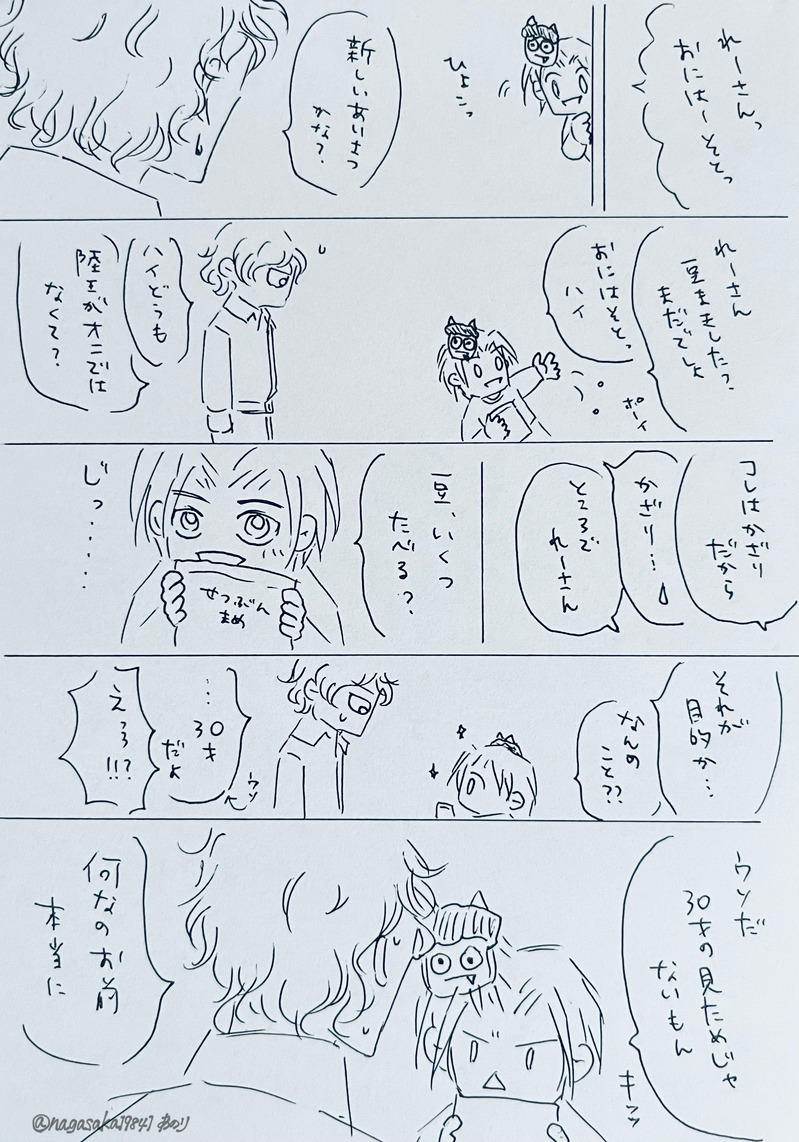 れーさんっ
おにはーそとっ
ひょこっ
新しいあいさつ
かな?
れーさん
豆まきした?
まだでしょ
おにはそとっ
ハイ
ポーイ
ハイどうも
陸王がオニでは
なくて?
コレはかざり
だから
かざり…
ところで
れーさん
豆、いくつ
たべる?
せつぶん
まめ
じっ・・・・・・
それが
目的か…
なんの
こと??
…30才
だよ
ウソ
えっっ!!?
ウソだ
30才の見ためじゃ
ないもん
キッ
何なのお前
本当に
@nagasaka19841 ゐのり